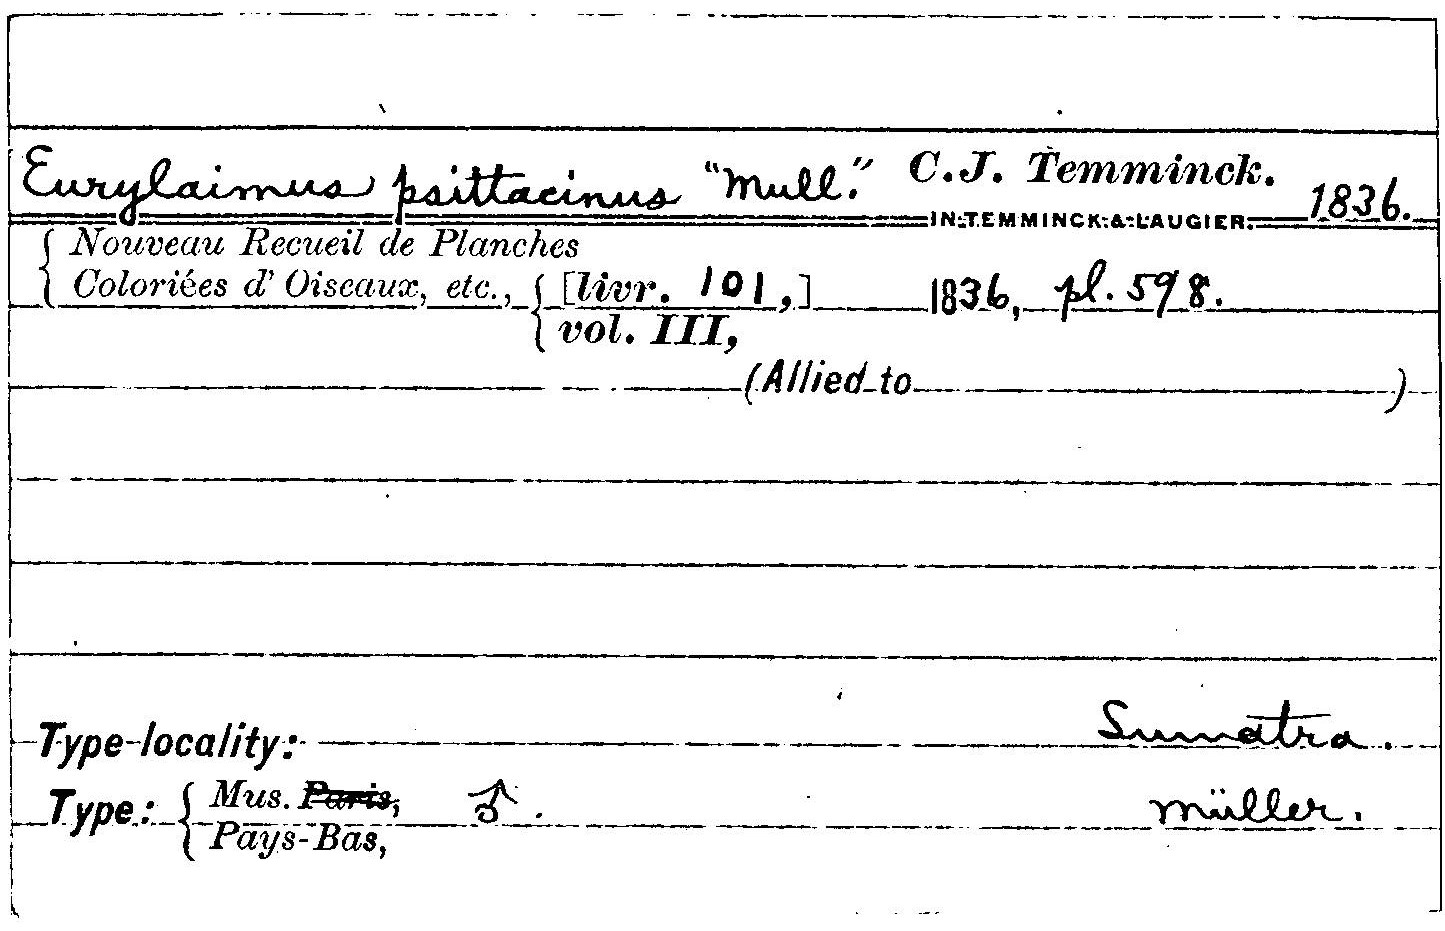 Eurylaimus psittacinus "Mull." C.J. Temminck. 1836.
IN TEMMINCK & LAUGIER.
Nouveau Recueil de Planches
Coloriées d' Oiseaux, etc., [livr. 101,] 1836, pl. 598.
vol. III,
(Allied to )
Type locality: Sumatra.
Type: Mus. Paris, ♂. Müller.
Pays-Bas,